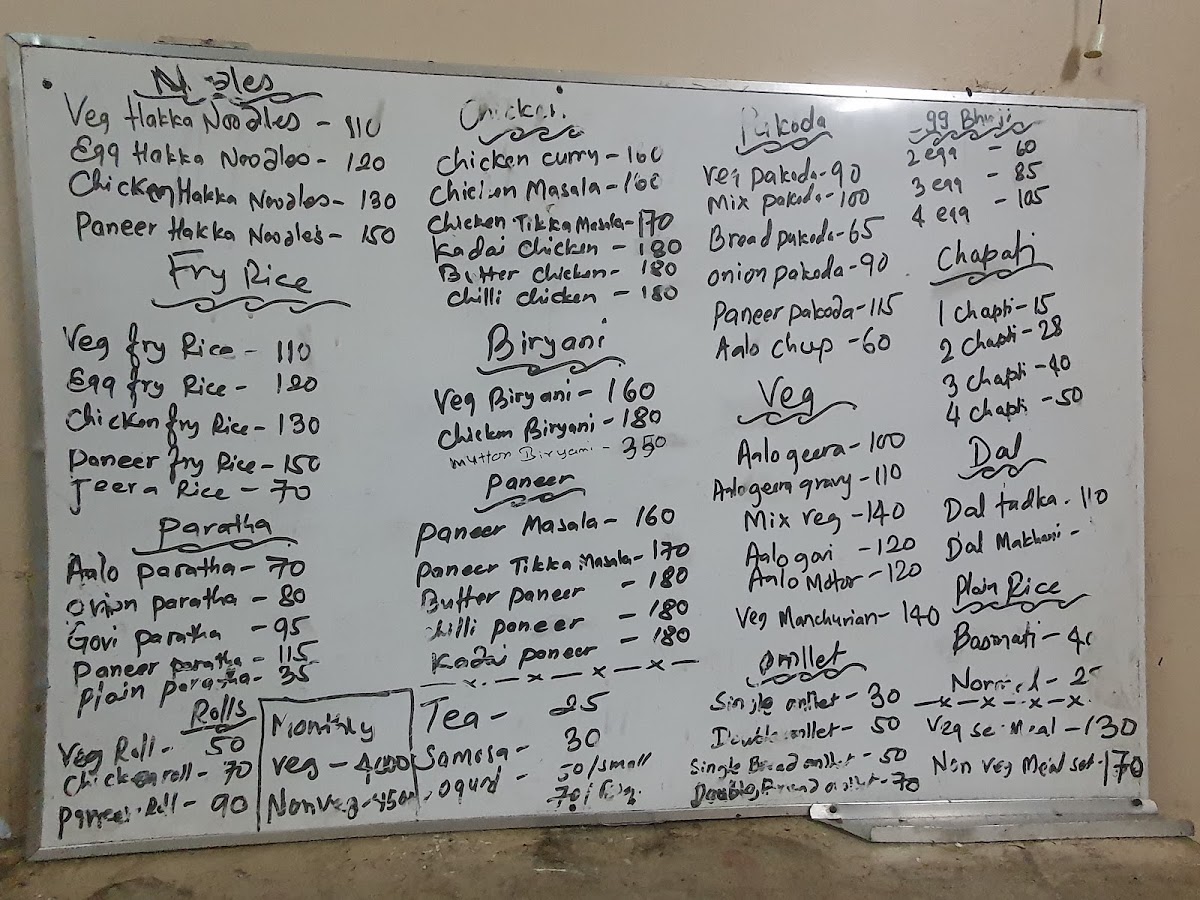 Veg Hakka Noodles - 110
Egg Hakka Noodles - 120
Chicken Hakka Noodles - 130
Paneer Hakka Noodles - 150
Fry Rice
Veg fry Rice - 110
Egg fry Rice - 120
Chicken fry Rice - 130
Paneer fry Rice - 150
Jeera Rice - 70
Paratha
Aalo paratha - 70
Onion paratha - 80
Govi paratha - 95
Paneer paratha - 115
Plain paratha - 35
Rolls
Veg Roll - 50
Chicken roll - 70
Paneer Roll - 90
Monthly
Veg - 4000
Non veg -
Chicken
Chicken curry - 160
Chicken Masala - 160
Chicken Tikka Masala - 170
Kadai Chicken - 180
Butter Chicken - 180
Chilli chicken - 180
Biryani
Veg Biryani - 160
Chicken Biryani - 180
Mutton Biryani - 350
Paneer
Paneer Masala - 160
Paneer Tikka Masala - 170
Butter paneer - 180
Chilli paneer - 180
Kadai paneer - 180
Tea - 25
Samosa - 30
50/small
70/
Pakoda
Veg pakoda - 90
Mix pakoda - 100
Bread pakoda - 65
Onion pakoda - 90
Paneer pakoda - 115
Aalo chup - 60
Veg
Aalo geera - 100
Aalo geera gravy - 110
Mix veg - 140
Aalo govi - 120
Aalo Motor - 120
Veg Manchurian - 140
omllet
Single omllet - 30
Double omllet - 50
Single Bread omllet - 50
Double Bread omllet - 70
gg Bhurji
2 egg - 60
3 egg - 85
4 egg - 105
Chapati
1 Chapti - 15
2 Chapti - 28
3 chapti - 40
4 chapti - 50
Dal
Dal tadka - 110
Dal Makhani -
Plain Rice
Basmati - 4
Normal - 2
-x-x-x-x-
Veg se meal - 130
Non veg Meal set - 170